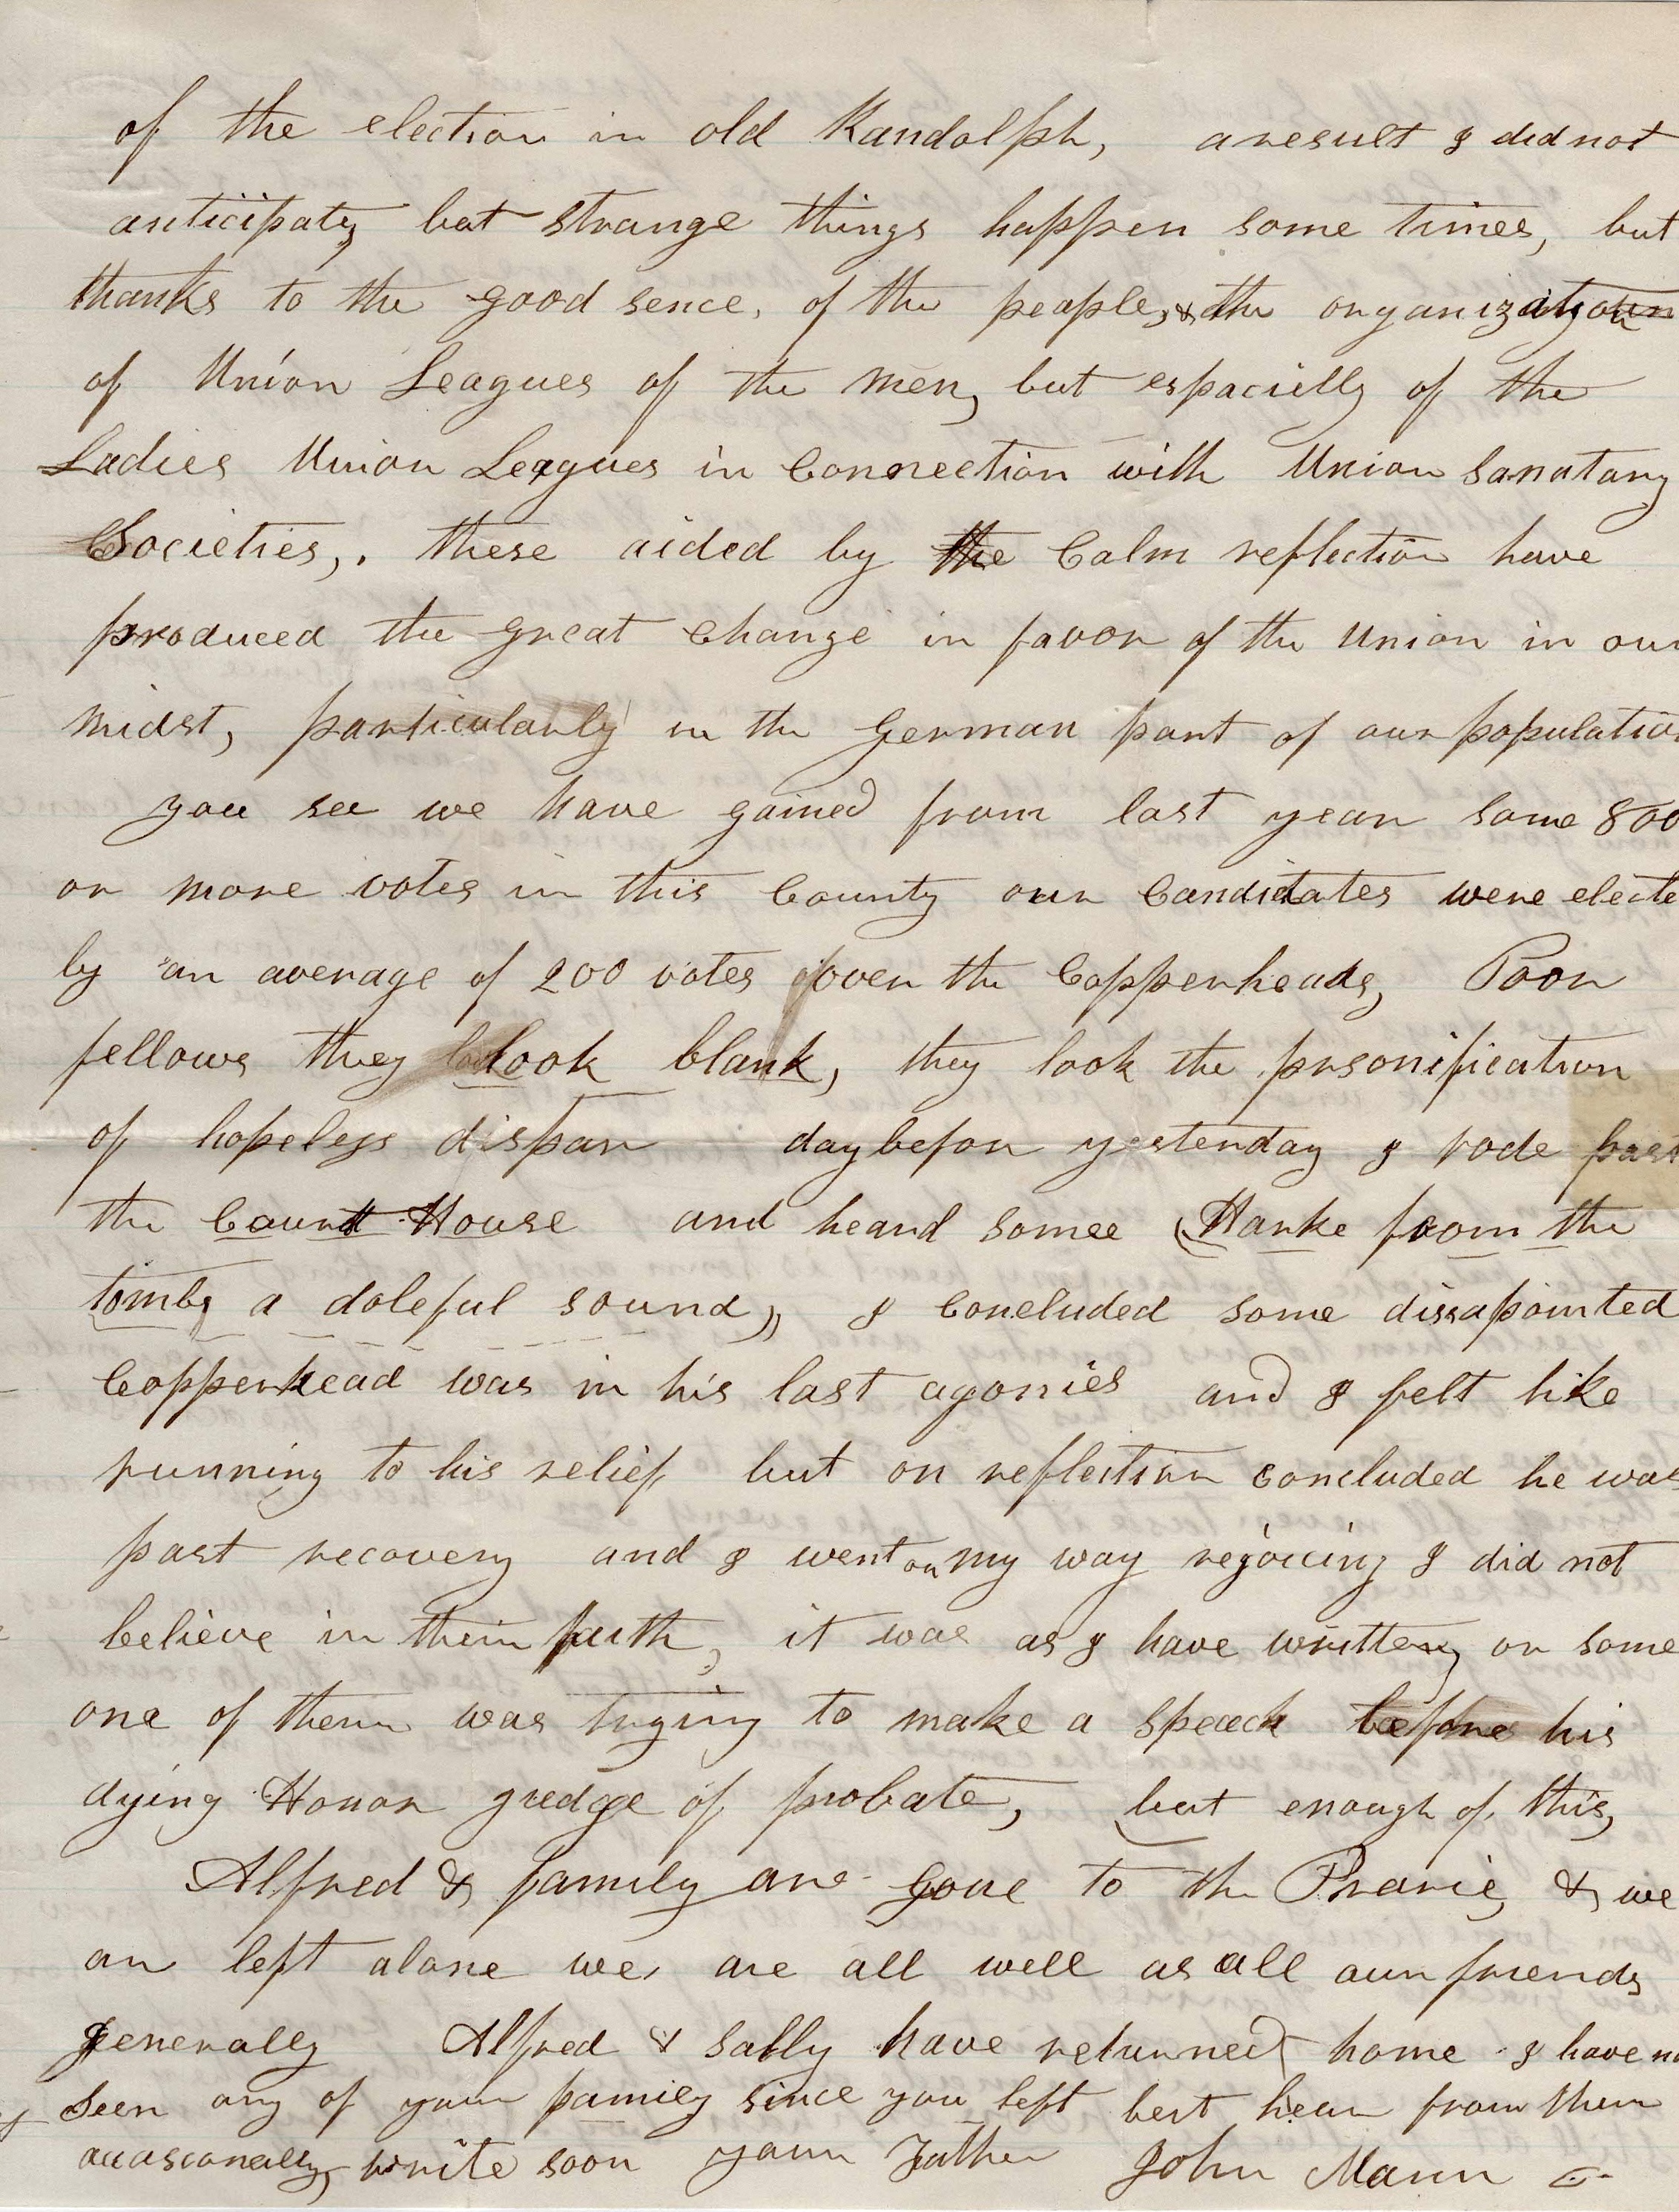 of the election in old Randolph, a result I did not
anticipaty but strange things happen some times, but
thanks to the good sence, of the people, & the organization
of Union Leagues of the men, but espacielly of the
Ladies Union Leagues in Connection with Union Sanatary
Societies,. these aided by the Calm reflection have
produced the great Change in favor of the Union in our
midst, particularly in the German part of our population
you see we have gained from last year some 800
or more votes in this County our Candidates were electe
by an average of 200 votes over the Copperheads, Poor
fellows they look blank, they look the prsonification
of hopeless dispar day befor yesterday I rode past
the Court House and heard somee (Harke from the
tombs a doleful sound,) I Concluded some dissapointed
Copperhead was in his last agonies and I felt like
running to his relief but on reflection Concluded he was
past recovery and I went on my way rejoicing I did not
believe in their faith, it was as I have written, or some
one of them was trying to make a speach before his
dying Honor Judge of probate, but enough of this,
Alfred & family are gone to the Prarie, & we
ar left alone we, are all well as all our friends
generally Alfred & Sally have returned home I have no
seen any of your family since you left but hear from them
occasionally, write soon your Father John Mann